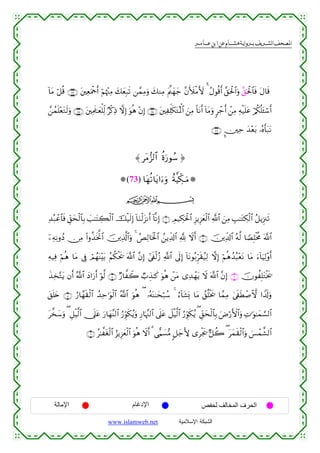 المصحف الشريف برواية هشام عن ابن عامر
قَالَ فَٱلْحَقَّ وَٱلْحَقَّ أَقُولُ لَأَمْلَأَنَّ جَهَنَّمَ مِنكَ وَمِمَّن تَبِعَكَ مِنْهُمْ أَجْمَعِينَ قُلْ مَآ
أَسْـَٔلُكُمْ عَلَيْهِ مِنْ أَجْرٍ وَمَآ أَنَا۠ مِنَ ٱلْمُتَكَلِّفِينَ إِنْ هُوَ إِلَّا ذِكْرٌ لِّلْعَـٰلَمِينَ وَلَتَعْلَمُنَّ
نَبَأَهُۥ بَعْدَ حِينٍۭ
﴿ سُورَةُ ٱلزُّمَر ﴾
مَكِّيَّةٌ وَءَايَاتُهَا (73)
بِسْمِ ٱللَّهِ ٱلرَّحْمَـٰنِ ٱلرَّحِيمِ
تَنزِيلُ ٱلْكِتَـٰبِ مِنَ ٱللَّهِ ٱلْعَزِيزِ ٱلْحَكِيمِ إِنَّآ أَنزَلْنَآ إِلَيْكَ ٱلْكِتَـٰبَ بِٱلْحَقِّ فَٱعْبُدِ
ٱللَّهَ مُخْلِصًا لَّهُ ٱلدِّينَ أَلَا لِلَّهِ ٱلدِّينُ ٱلْخَالِصُ وَٱلَّذِينَ ٱتَّخَذُوا۟ مِن دُونِهِۦٓ
أَوْلِيَآءَ مَا نَعْبُدُهُمْ إِلَّا لِيُقَرِّبُونَآ إِلَى ٱللَّهِ زُلْفَىٰٓ إِنَّ ٱللَّهَ يَحْكُمُ بَيْنَهُمْ فِى مَا هُمْ فِيهِ
يَخْتَلِفُونَ إِنَّ ٱللَّهَ لَا يَهْدِى مَنْ هُوَ كَـٰذِبٌ كَفَّارٌ لَّوْ أَرَادَ ٱللَّهُ أَن يَتَّخِذَ
وَلَدًا لَّٱصْطَفَىٰ مِمَّا يَخْلُقُ مَا يَشَآءُ سُبْحَـٰنَهُۥ هُوَ ٱللَّهُ ٱلْوَٰحِدُ ٱلْقَهَّارُ خَلَقَ
ٱلسَّمَـٰوَٰتِ وَٱلْأَرْضَ بِٱلْحَقِّ يُكَوِّرُ ٱلَّيْلَ عَلَى ٱلنَّهَارِ وَيُكَوِّرُ ٱلنَّهَارَ عَلَى ٱلَّيْلِ وَسَخَّرَ
ٱلشَّمْسَ وَٱلْقَمَرَ كُلٌّ يَجْرِى لِأَجَلٍ مُّسَمًّى أَلَا هُوَ ٱلْعَزِيزُ ٱلْغَفَّـٰرُ
الحرف المخالف لحفص الإدغام الإمالة
الشبكة الإسلامية www.islamweb.net